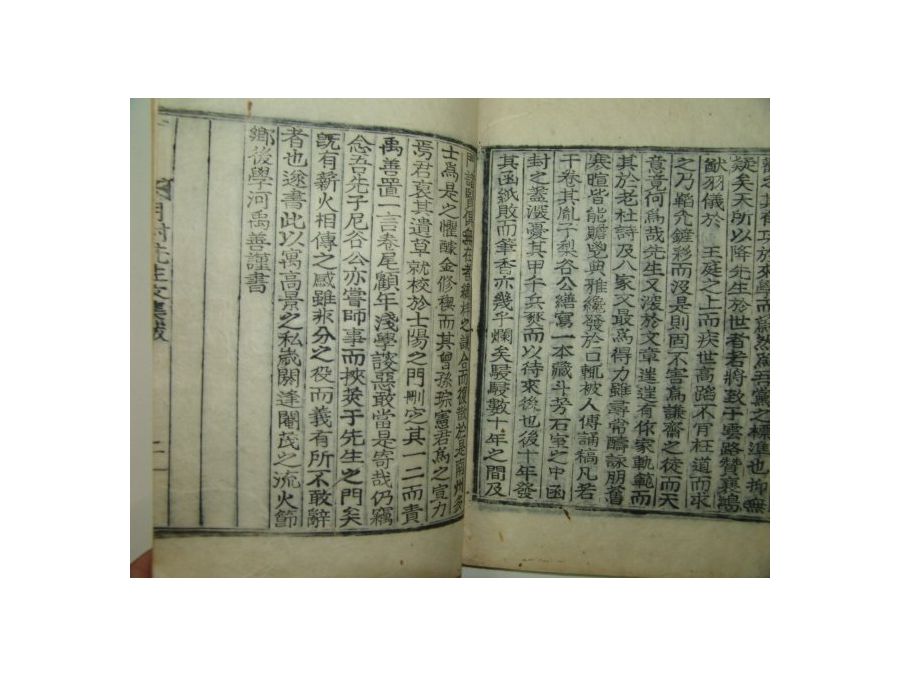 疑矣天所以降先生於世者將致于雲路贊襄鵷
猷羽儀於 王庭之上而疾世高蹈不肯枉道而求
之乃韜光鏟彩而沒是則固不害爲謙齋之徒而天
意竟何爲哉先生又深於文章逬逬有作家軌範而
其於老杜詩及八家文最爲得力雖尋常酬詠朋舊
寒暄皆能贍鬯典雅纔發於口輒被人傳誦稿凡若
干卷其胤子梨谷公繕寫一本藏斗芳石室之中函
封之蓋深憂其甲千兵燹而以待來後也後十年發
其函紙敗而筆香亦幾乎爛矣駸駸數十年之間及
士爲是之懼醵金修稧而其曾孫琮憲君爲之宣力
焉君裒其遺草就校於士陽之門刪定其一二而責
禹善置一言卷尾顧年淺學謏惡敢當是寄哉仍竊
念吾先子尼谷公亦嘗師事而挾莢于先生之門矣
旣有薪火相傳之感雖非分之役而義有所不敢辭
者也遂書此以寓高景之私歲閼逢閹茂之流火節
鄕後學河禹善謹書